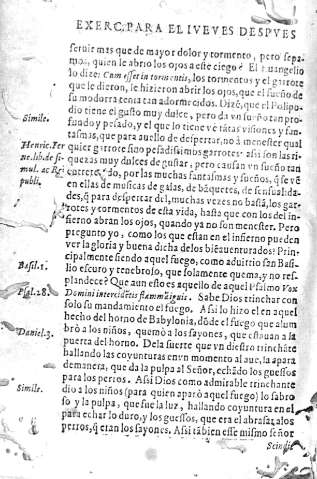 EXERC. PARA EL IVEVES DESPVES
seruir mas que de mayor dolor y tormento, pero sepa-
mos, quien le abrio los ojos a este ciego? El Euangelio
lo dize: Cum esset in tormentis, los tormentos y el garrote
que le dieron, le hizieron abrir los ojos, que el sueño de
su modorra tenia tan adormecidos. Dizē, que el Polipo
dio tiene el gusto muy dulce, pero da vn sueño tan pro-
Simile.
fundo y pesado, y el que lo tiene vè tatas visiones y fan-
tasmas, que para auello de despertar, no à menester qual
Henric. Fer
quier garrote sino pesadissimos garrotes: assi son las ri-
ne. lib. de si
quezas muy dulces de gustar, pero causan vn sueño tan
mul. ac Rei
por las muchas fantasmas y sueños, q̃ se vē
publi.
en ellas de musicas de galas, de bāquetes, de sensualida-
des, q̃ para despertar del, muchas vezes no bastā, los gar-
rotes y tormentos de esta vida, hasta que con los del in-
fierno abran los ojos, quando ya no son menester. Pero
pregunto yo, como los que estan en el infierno pueden
ver la gloria y buena dicha dos biēauenturados? Prin-
cipalmente siendo aquel fuego, como aduirtio san Basi-
Basil. 1.
lio escuro y tenebroso, que solamente quema, y no res-
plandece? Que aun esso es aquello de aquel Psalmo Vox
Psal. 28.
Domini intercidētis flammā ignis. Sabe Dios trinchar con
solo su mandamiento el fuego. Assi lo hizo el en aquel
hecho del horno de Babylonia, dōde el fuego que alum
Daniel. 3.
brò a los niños, quemò a los sayones, que estauan a la
puerta del horno. De la suerte que vn diestro trinchāte
hallando las coyunturas en vn momento al aue, la aparta
demanera, que da la pulpa al Señor, echādo los guessos
para los perros. Assi Dios como admirable trinchante
Simile.
dio a los niños (para quien aparò aquel fuego) lo sabro
so y la pulpa, que fue la luz, hallando coyuntura en el
para echar lo duro, y los guessos, que era el abrasar, a los
perros, q̃ eran los sayones. Assi tābien esse mismo señor
Scindit